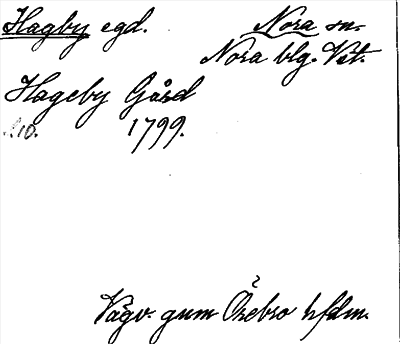 Hagby egd. Nora sn.
Nora blg. Vst.
Hageby Gård
1799.
Vägv. gum Örebro h/dm.